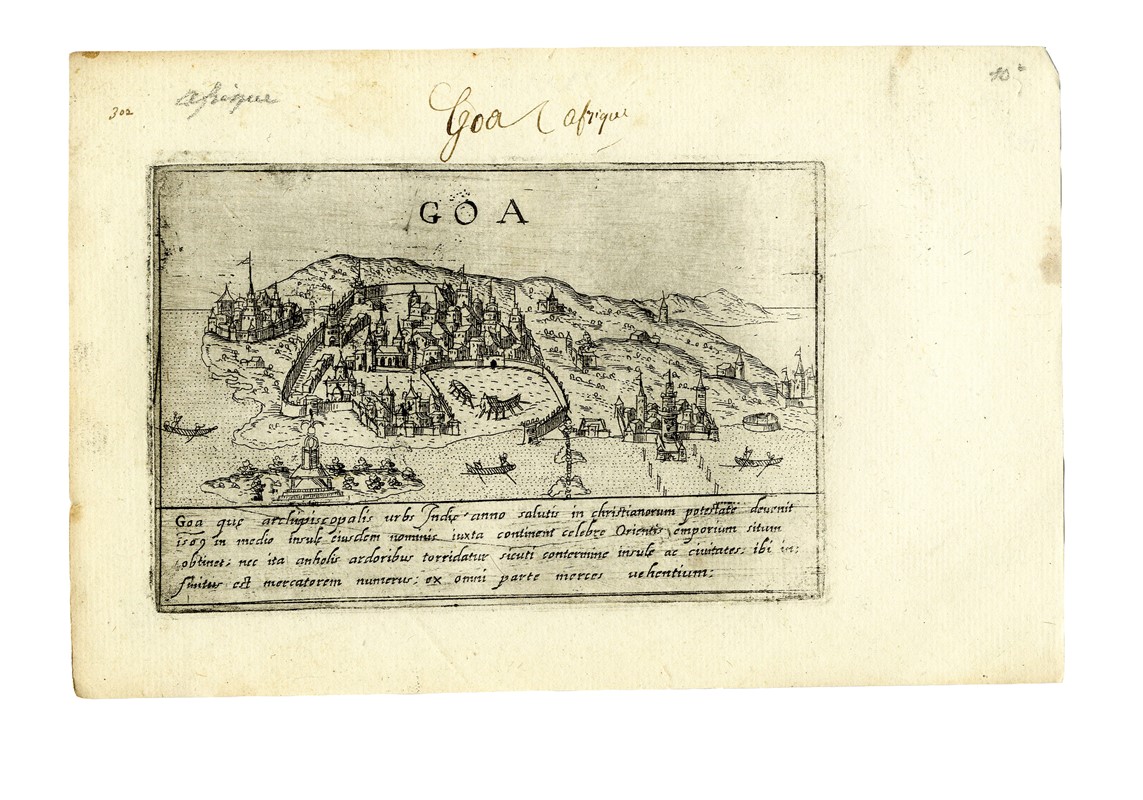 302
afrique
Goa afrique
10
GOA
Goa quę archiepiscopalis urbs Indię anno salutis in christianorum potestatē devenit
1509 in medio insulę eiusdem nominis iuxta continent celebre Orientis emporium situm
obtinet: nec ita anhelis ardoribus torridatur sicuti contermine insule ac civitates: ibi in:
finitus est mercatorem numerus: ex omni parte merces vehentium: